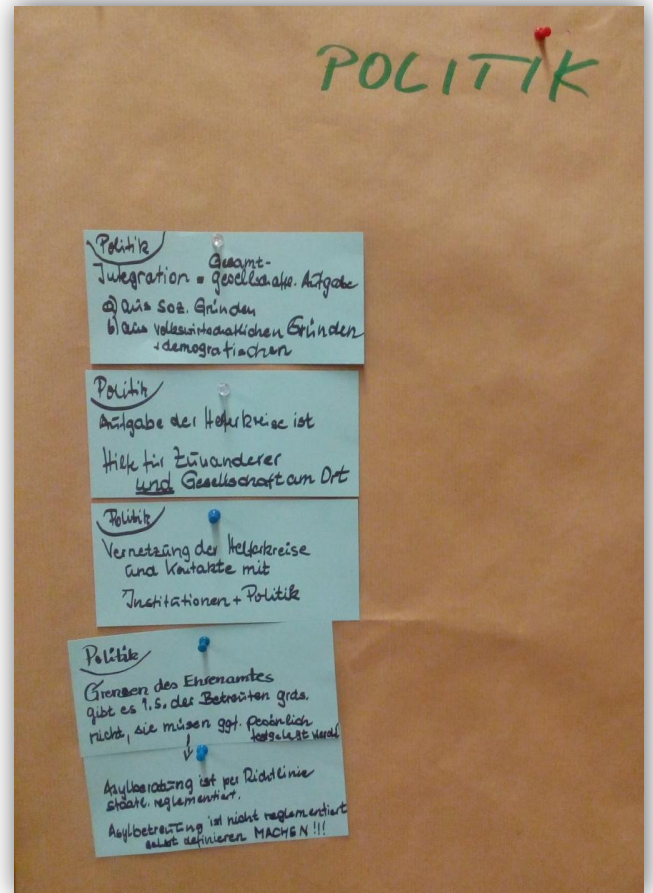 POLITIK
Politik
Gesamt-
Integration = gesellschaftl. Aufgabe
a) aus soz. Gründen
b) aus volkswirtschaftlichen Gründen
+ demografischen
Politik
Aufgabe der Helferkreise ist
Hilfe für Zuwanderer
und Gesellschaft am Ort
Politik
Vernetzung der Helferkreise
und Kontakte mit
Institutionen + Politik
Politik
Grenzen des Ehrenamtes
gibt es i. S. der Betreuten grds.
nicht, sie müsen ggf. persönlich
festgelegt werd
Asylberatung ist per Richtlinie
staatl. reglementiert.
Asylbetreuung ist nicht reglementiert
selbst definieren MACHEN !!!